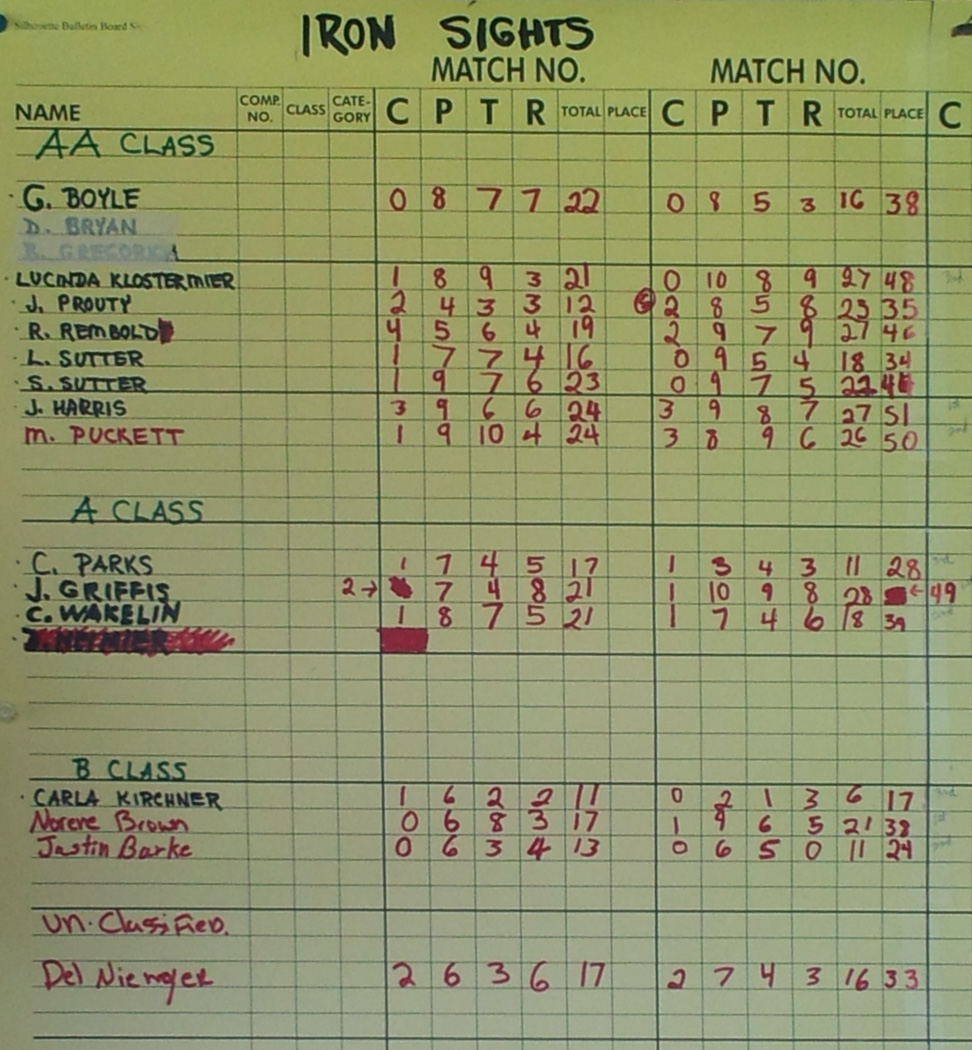 Silhouette Bulletin Board
IRON SIGHTS
MATCH NO. MATCH NO.
NAME COMP. NO. CLASS CATE-GORY C P T R TOTAL PLACE C P T R TOTAL PLACE C
AA CLASS
G. BOYLE 0 8 7 7 22 0 8 5 3 16 38
D. BRYAN
R. GREGORICA
LUCINDA KLOSTERMIER 1 8 9 3 21 0 10 8 9 27 48 3rd
J. PROUTY 2 4 3 3 12 2 8 5 8 23 35
R. REMBOLD 4 5 6 4 19 2 9 7 9 27 46
L. SUTTER 1 7 7 4 16 0 9 5 4 18 34
S. SUTTER 1 9 7 6 23 0 9 7 5 22
J. HARRIS 3 9 6 6 24 3 9 8 7 27 51 1st
M. PUCKETT 1 9 10 4 24 3 8 9 6 26 50 2nd
A CLASS
C. PARKS 1 7 4 5 17 1 3 4 3 11 28 3rd
J. GRIFFIS 2→ 7 4 8 21 1 10 9 8 28 ←49
C. WAKELIN 1 8 7 5 21 1 7 4 6 18 39 2nd
B CLASS
CARLA KIRCHNER 1 6 2 2 11 0 2 1 3 6 17 3rd
Norene Brown 0 6 8 3 17 1 9 6 5 21 38 1st
Justin Barke 0 6 3 4 13 0 6 5 0 11 24 2nd
Un-Classified.
Del Niemoyer 2 6 3 6 17 2 7 4 3 16 33